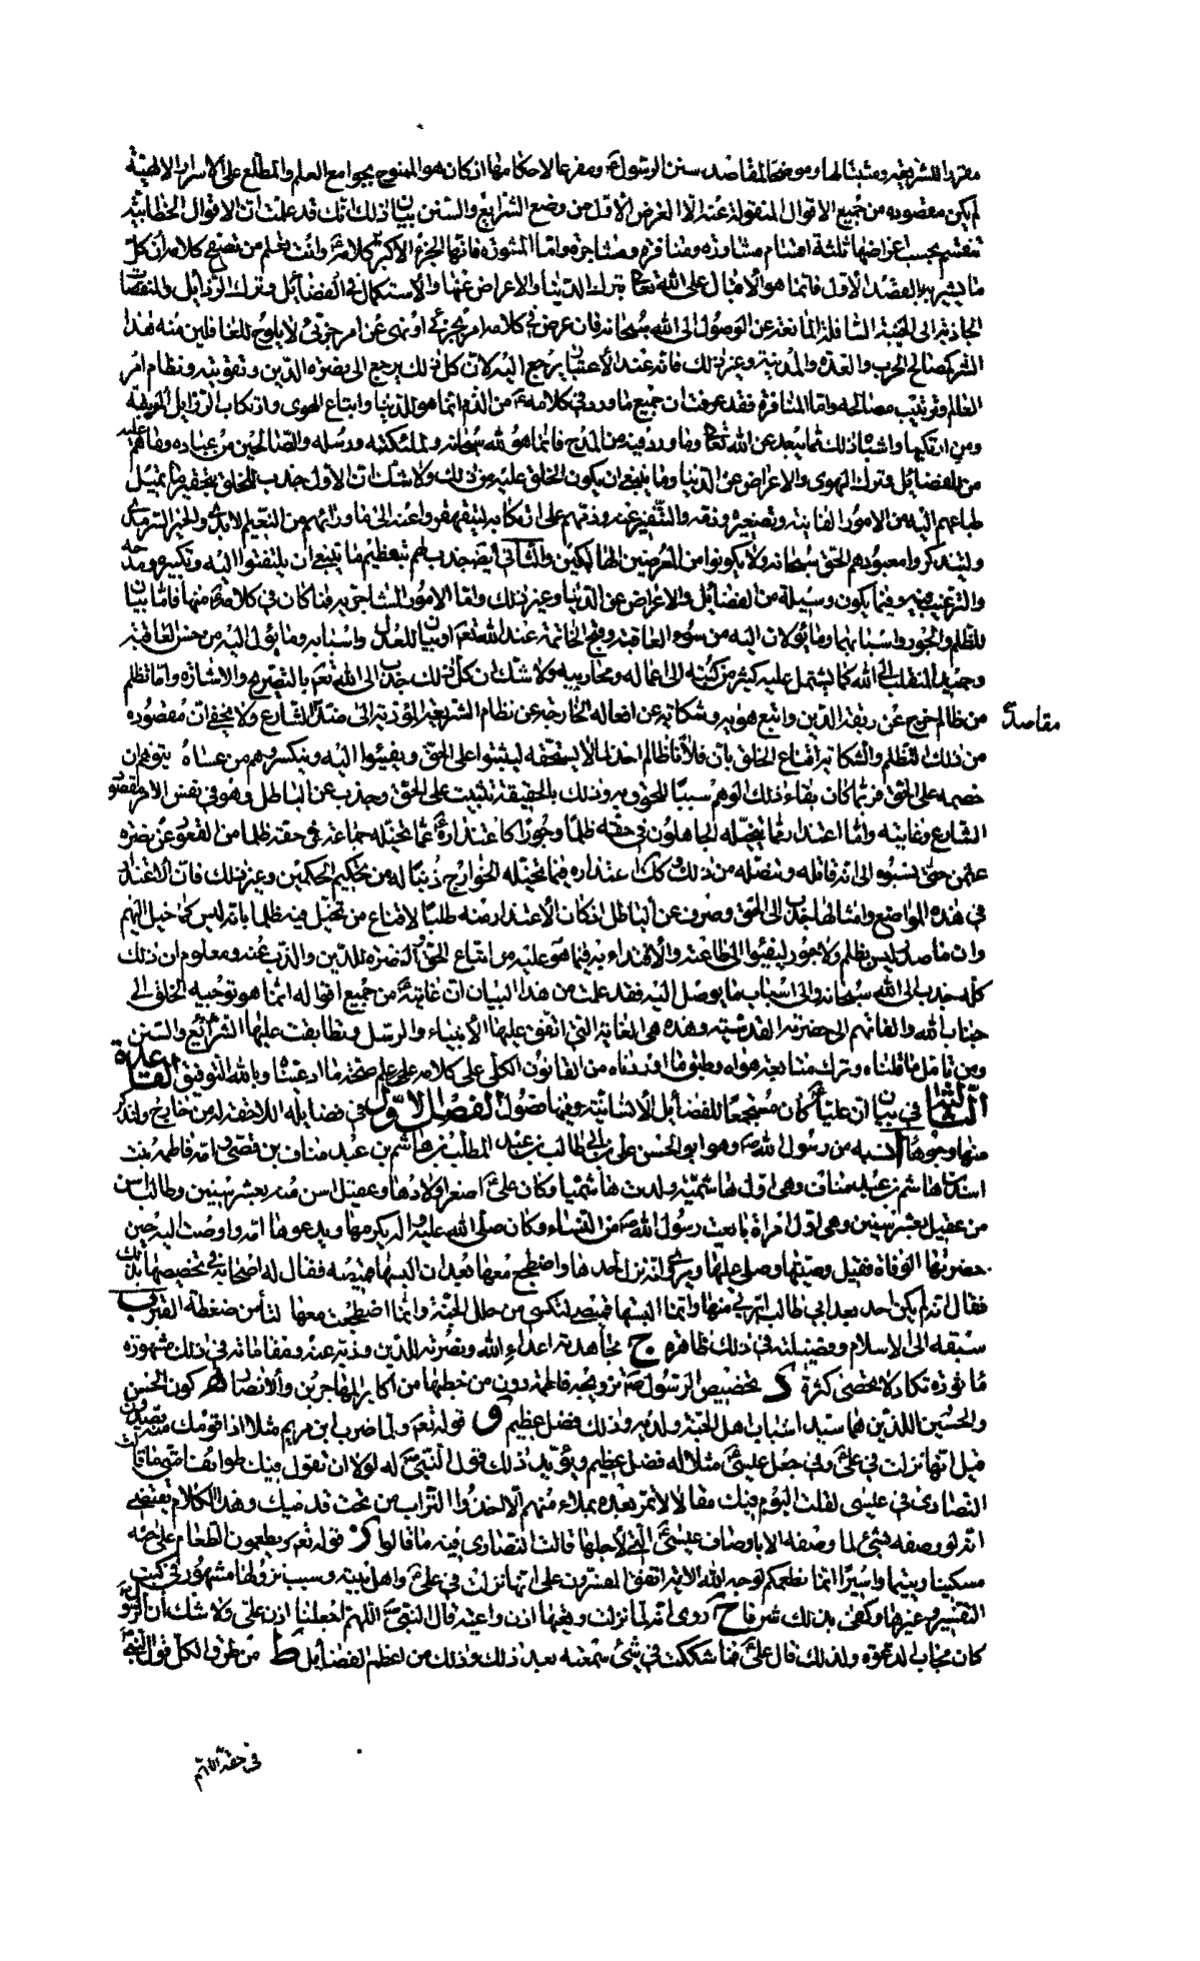 مقررا للشريعة ومثبتا لها وموضحا لمقاصد سنن الرسول ص ومفرعا لاحكامها اذ كان هو الممنوح بجوامع العلم والمطلع على الاسرار الالهية
لم يكن مقصوده من جميع الاقوال المنقولة عنه الا الغرض الاول من وضع الشرايع والسنن بيان ذلك انك قد علمت ان الاقوال الخطابية
تنقسم بحسب اغراضها ثلثة اقسام مشاورة ومنافرة ومشاجرة واما المشورة فانها الجزء الاكبر كلامه ع وانت تعلم من تصفح كلامه ان كل
ما يشير به بالقصد الاول فانما هو الاقبال على الله تعالى بترك الدنيا والاعراض عنها والاستكمال في الفضائل وترك الرذايل والمنقصات
الجاذبة الى الجنبة السافلة المانعة عن الوصول الى الله سبحانه فان عرض في كلامه امر بجزئي او نهى عن امر جزئي لا يلوح للغافلين منه هذا
السر كمصالح الحرب والمدنية وغير ذلك فانه عند الاعتبار يرجع اليه لان كل ذلك يرجع الى نصرة الدين وتقويته ونظام امر
العالم وترتيب مصالحه واما المنافرة فقد عرفت ان جميع ما ورد في كلامه ع من الذم انما هو للدنيا واتباع الهوى وارتكاب الرذايل الموبقة
ومن ارتكبها واشباه ذلك مما يبعد عن الله تعالى وما ورد فيه من المدح فانما هو لله سبحانه وملئكته ورسله والصالحين من عباده وما هم عليه
من الفضائل وترك الهوى والاعراض عن الدنيا وما ينبغي ان يكون الخلق عليه من ذلك ولا شك ان الاول جذب للخلق بتحقير ما تميل
طباعهم اليه من الامور الفانية وتصغيره وذمه والتنفير عنه وذمهم على ارتكابه ليتقهقروا عنه الى ما ورائهم من النعيم الابدي والخير السرمدي
وليتذكروا معبودهم الحق سبحانه ولا يكونوا من المعرضين الهالكين والثاني ايضا جذب لهم بتعظيم ما ينبغي ان يلتفتوا اليه وتكبيره ومدحه
والترغيب فيه وفيما يكون وسيلة من الفضائل والاعراض عن الدنيا وغير ذلك واما الامور المشاجرية فما كان في كلامه ع منها فاما بيان
للظلم والجور واسبابهما وما يؤلان اليه من سوء العاقبة وقبح الخاتمة عند الله تعالى او بيان للعدل واسبابه وما يؤل اليه من حسن العاقبة
وحميد المنقلب الى الله كما يشتمل عليه كثير من كتبه الى عماله ومحاربيه ولا شك ان كل ذلك جذب الى الله تعالى بالتصريح والاشارة واما تظلم
من ظالم خرج عن ربقة الدين واتبع هواه وشكاية عن افعاله الخارجة عن نظام الشريعة المؤدية الى ضد مقاصد الشارع ولا يخفى ان مقصوده
من ذلك التظلم والشكاية اقناع الخلق بان فلانا ظالم اخذ لما لا يستحقه ليثبتوا على الحق ويفيئوا اليه وينكسر وهم من عساه يتوهم ان
خصمه على الحق فربما كان بقاء ذلك الوهم سببا للحوق به وذلك بالحقيقة تثبيت على الحق وجذب عن الباطل وهو في نفس الامر مقصود
الشارع وغايته واما اعتذار مما يتخيله الجاهلون في حقه ظلما وجورا كاعتذاره عما تخيله جماعة في حقه ظلما من القعود عن نصرة
عثمن حتى نسبوه الى انه قاتله وتنصله من ذلك وكاعتذاره فيما تخيله الخوارج ذنبا له من تحكيم الحكمين وغير ذلك فان الاعتذار
في هذه المواضع وامثالها جذب الى الحق وصرف عن الباطل اذ كان الاعتذار منه طلبا لاقناع من تخيل فيه ظلما بانه ليس كما خيل اليهم
وان ما صدر ليس بظلم ولا جور ليفيئوا الى طاعته والاقتداء به فيما هو عليه من اتباع الحق والنصرة للدين والذب عنه ومعلوم ان ذلك
كله جذب الى الله سبحانه والى اسباب ما يوصل اليه فقد علمت من هذا البيان ان غايته ع من جميع اقواله انما هو توجيه الخلق الى
جناب الله والفاتهم الى حضرته القدسية وهذه هي الغاية التي اتفق عليها الانبياء والرسل وتطابقت عليها الشرائع والسنن
ومن تامل ما قلناه وترك متابعة هواه وطبق ما اوردناه من القانون الكلي على كلامه ع علم صحة ما ادعيناه وبالله التوفيق القاعدة
الثالثة في بيان ان عليا ع كان مستجمعا للفضائل الانسانية وفيها فصول الفصل الاول في فضايله اللاحقة له من خارج ولنذكر
منها وجوها ا نسبه من رسول الله ص وهو ابو الحسن علي بن ابي طالب بن عبد المطلب بن هاشم بن عبد مناف بن قصي امه فاطمة بنت
اسد بن هاشم بن عبد مناف وهي اول هاشمية ولدت هاشميا وكان علي ع اصغر اولادها وعقيل اسن منه بعشر سنين وطالب اسن
من عقيل بعشر سنين وهي اول امراة بايعت رسول الله ص من النساء وكان صلى الله عليه واله يكرمها ويدعوها امه واوصت اليه حين
حضرتها الوفاة فقبل وصيتها وصلى عليها ونزل لحدها واضطجع معها بعد ان البسها قميصه فقال له اصحابه في تخصيصها بذلك
فقال انه لم يكن احد بعد ابي طالب ابر بي منها وانما البستها قميصي لتكسى من حلل الجنة وانما اضطجعت معها لتأمن ضغطة القبر ب
سبقه الى الاسلام وفضيلته في ذلك ظاهرة ج مجاهدته اعداء الله ونصرته للدين وذبه عنه ومقاماته في ذلك مشهورة
مأثورة تكاد لا تحصى كثرة د تخصيص الرسول ص بتزويجه فاطمة دون من خطبها من اكابر المهاجرين والانصار ه كون الحسن
والحسين اللذين هما سيدا شباب اهل الجنة ولديه وذلك فضل عظيم و قوله تعالى ولما ضرب ابن مريم مثلا اذا قومك منه يصدون
قيل انها نزلت في علي ع وفي جعل عيسى ع مثلا له فضل عظيم ويؤيد ذلك قول النبي ص له لولا ان تقول فيك طوائف امتي ما قالت
النصارى في عيسى لقلت اليوم فيك مقالا لا تمر بعده بملاء منهم الا اخذوا التراب من تحت قدميك وهذا الكلام يقتضي
انه لو وصفه بشيء لما وصفه الا باوصاف عيسى ع التي لاجلها قالت النصارى فيه ما قالوا ز قوله تعالى ويطعمون الطعام على حبه
مسكينا ويتيما واسيرا انما نطعمكم لوجه الله الاية اتفق المفسرون على انها نزلت في علي ع واهل بيته وسبب نزولها مشهور في كتب
التفسير وغيرها وكفى بذلك شرفا ح روى انه لما نزلت وتعيها اذن واعية قال النبي ص اللهم اجعلها اذن علي ولا شك ان الرسول
كان مجاب الدعوة ولذلك قال علي ع فما شككت في شيء سمعته بعد ذلك وذلك من اعظم الفضائل ط من طرف الكل قول النبي ص
في حقه اللهم